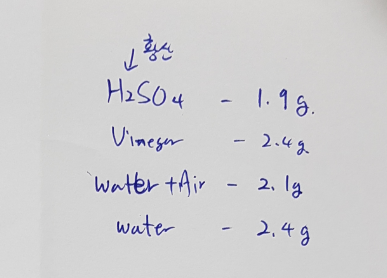 ↓ 황산
H2SO4 - 1.9g.
Vinegar - 2.4g
Water + Air - 2.1g
water - 2.4g